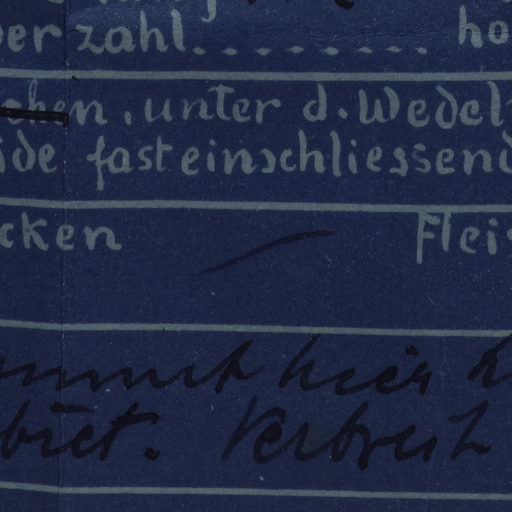 erzahl......... ho
chen, unter d. Wedel
ide fast einschliessend
cken Flei
nimmt hier
biet. Verbreit